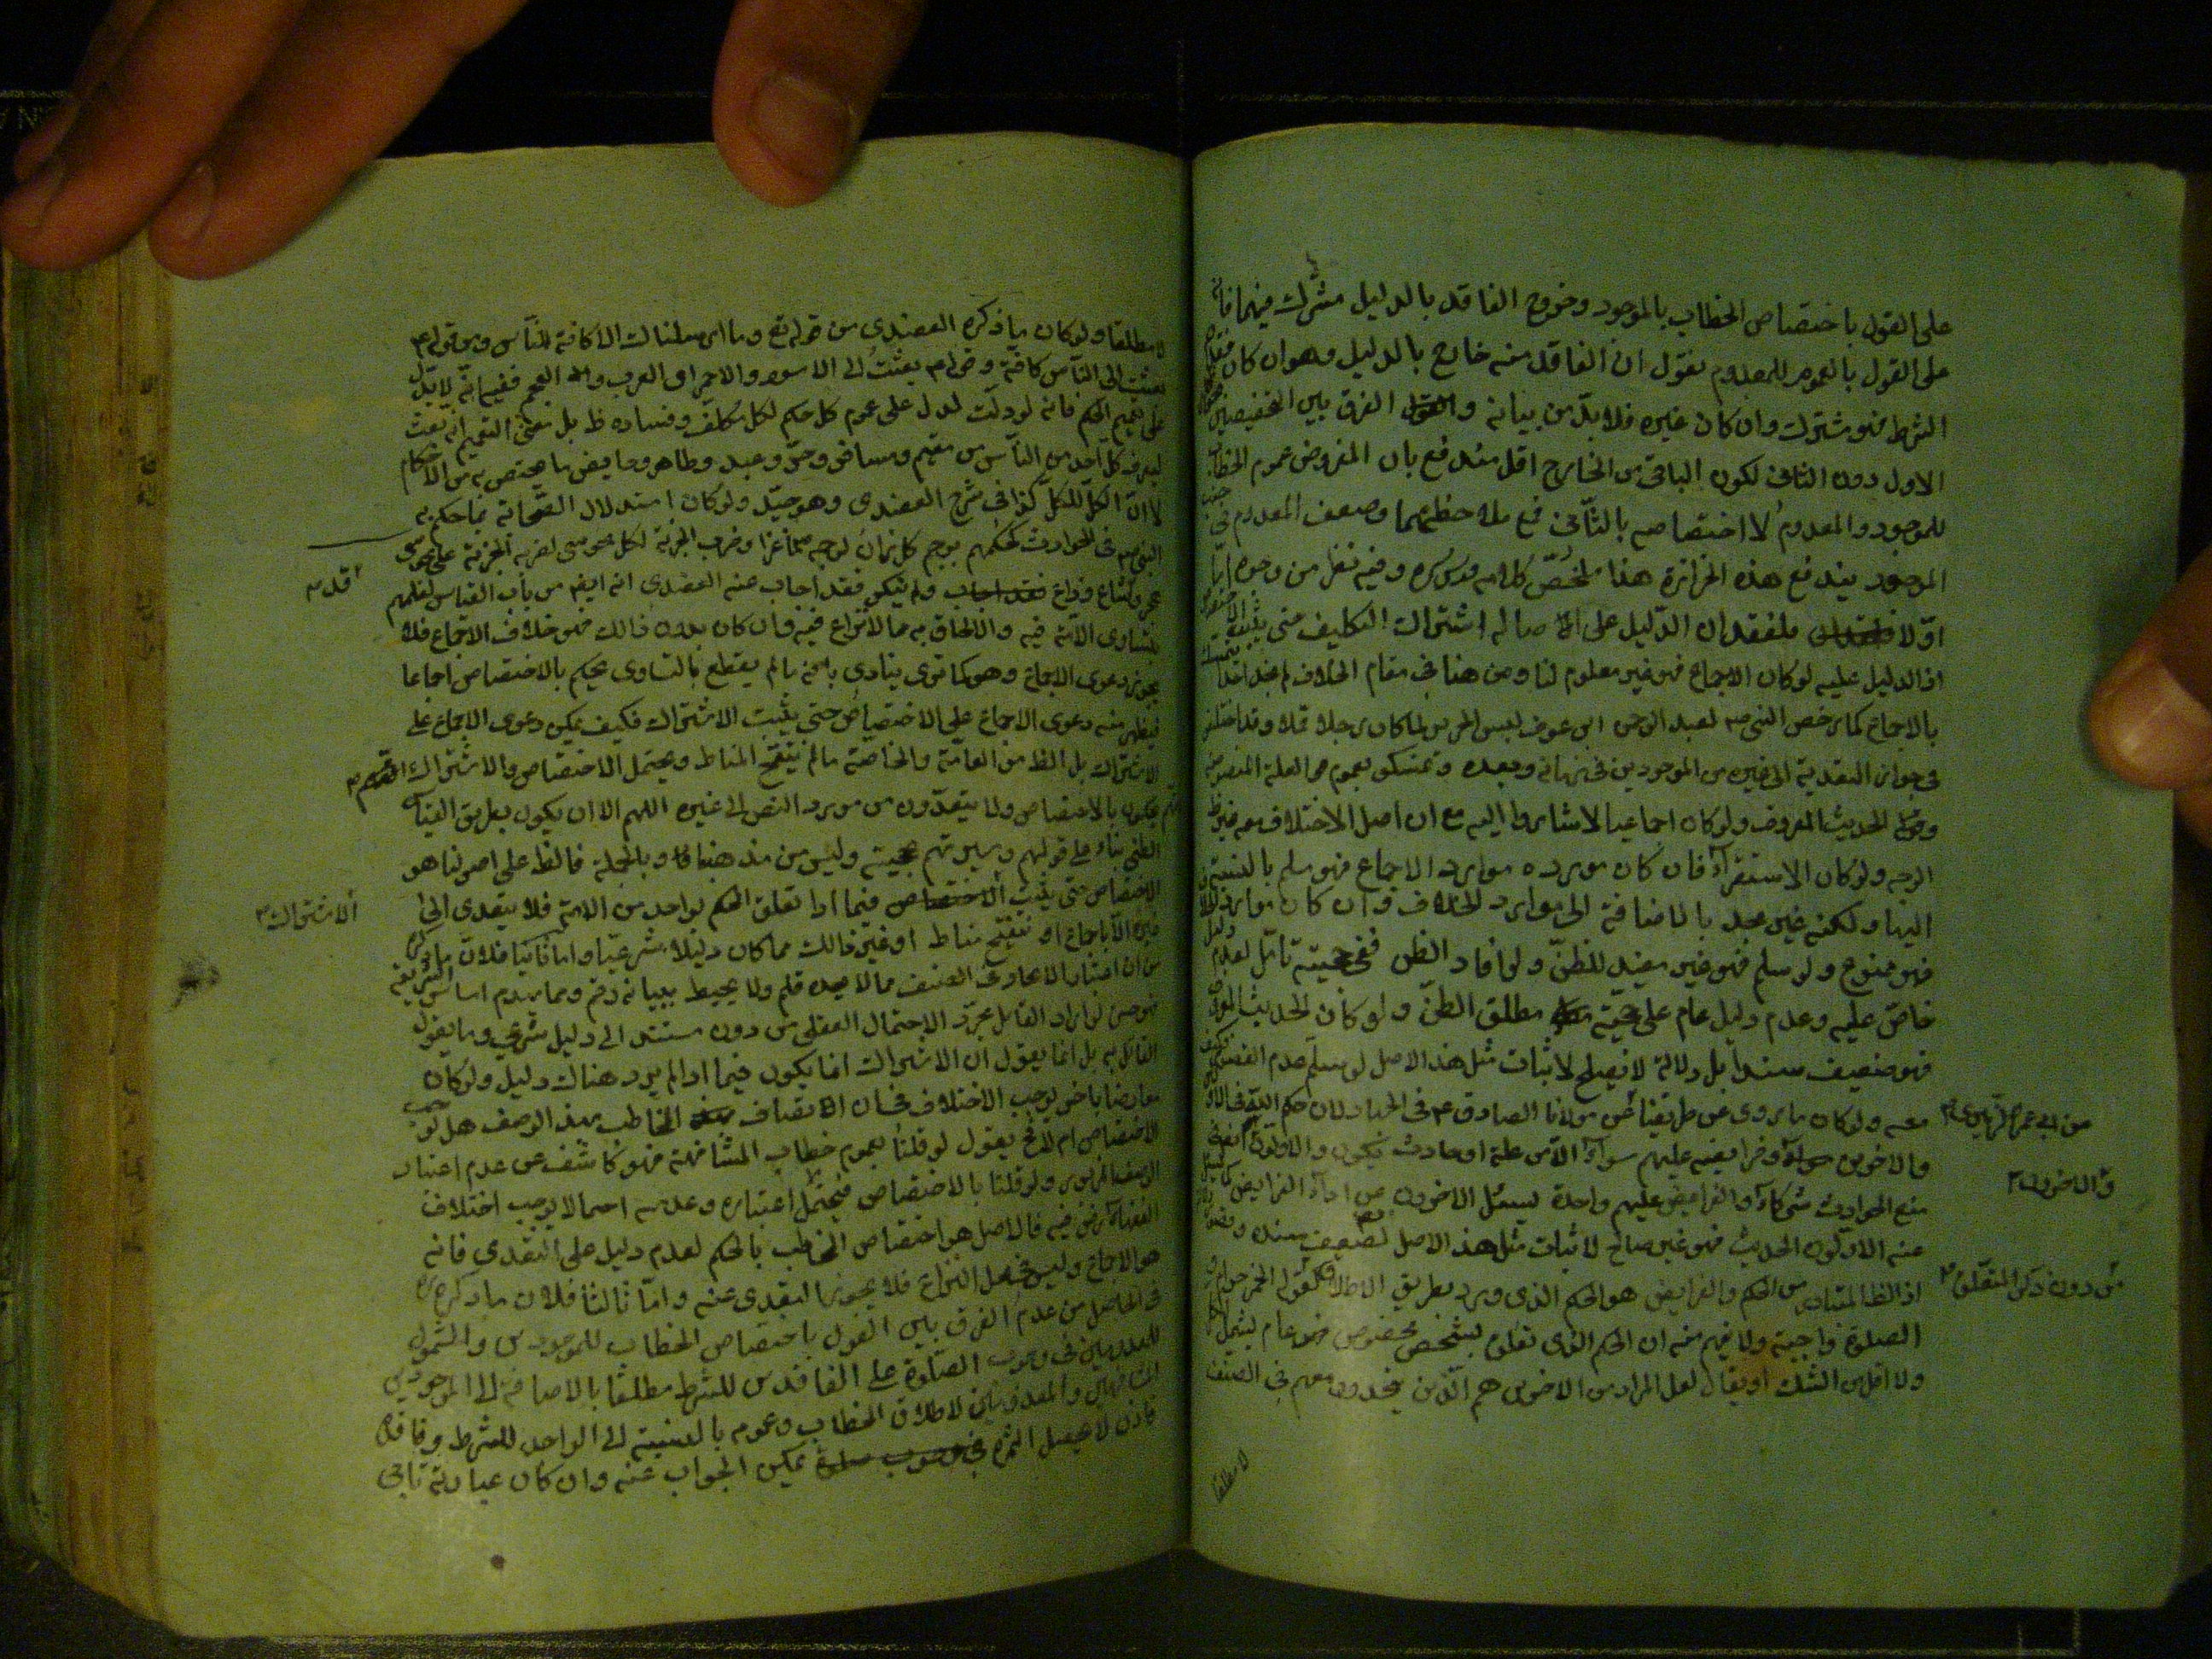 على القول باختصاص الخطاب بالموجود وخروج الفاقد بالدليل مشترك فيهما فانه
على القول بالعموم للمعدوم نقول ان الفاقد منه خارج بالدليل وهو ان كان
الشرط فهو مشترك وان كان غيره فلا بدّ من بيانه و الفرق بين التخصيصين
الاول دون الثانى لكون الباقى من الخارج اقل مندفع بان المفروض عموم الخطاب
للموجود والمعدوم لا اختصاصه بالثّانى فمع ملاحظتهما وضعف المعدوم فى
الموجود يندفع هذه الحزازة هذا ملخّص كلامه قدس سره وفيه نظر من وجوه امّا
اوّلا فلفقدان الدّليل على اصالة اشتراك التكليف حتى يثبت
اذ الدليل عليه لو كان الاجماع فهو غير معلوم لنا ومن هنا فى مقام الخلاف لم نجد احدا
بالاجماع كما رخص النبى ص لعبد الرحمن ابن عوف لبس الحرير لما كان رجلا قملا وقد اختلفوا
فى جواز التعدية الى غيره من الموجودين فى زمانه وبعده وتمسكو بعموم العلة المنصوصة
الحديث المعروف ولو كان اجماعيا لاشاروا اليه مع ان اصل الاختلاف معه غير
الوجه ولو كان الاستقرآء فان كان مورده موارد الاجماع فهو مسلم بالنسبة
اليها ولكنه غير مجد بالاضافة الى موارد الخلاف وان كان موارد الخلاف
فهو ممنوع ولو سلم فهو غير مفيد للظنّ ولو افاد الظن ففى حجيته تأمّل لعدم دليل
خاصّ عليه وعدم دليل عام على حجيّة مطلق الظنّ ولو كان الحديث المعروف
فهو ضعيف سندا بل دلالة لا يصلح لاثبات مثل هذا الاصل لو سلم عدم
معه ولو كان ما روى من طريقنا عن مولانا الصادق ع فى الجهاد لان حكم اللّه فى الاولين
من ابى عمرو الزبيرى
والاخرين وفرايضه عليهم سوآء الّا من علة او حادث يكون والاولون ايضا فى
والاخرون
منع الحوادث شركاء والفرايض عليهم واحدة يسئل الاخرون عن ادآء الفرايض كما يسئل
عنه الاولون الحديث فهو غير صالح لاثبات مثل هذا الاصل لضعف سنده
اذ الظ المتبادر من الحكم والفرايض هو الحكم الذى ورد بطريق الاطلاق كقوله الخمر حرام او
من دون ذكر المتعلق
الصلوة واجبة ولا يفهم منه ان الحكم الذى تعلق بشخص مخصوص عام يشمل الكل
ولا اقل من الشك او يقال لعل المراد من الاخرين هم الّذين يتحدون معهم فى الصنف
لا مطلقا
لا مطلقا ولو كان ما ذكره العضدى من قوله تع وما ارسلناك الا كافة للنّاس ومن قوله ع
بعثت الى النّاس كافة وقوله ع بعثت الى الاسود والاحمر اى العرب و العجم ففيه انّه لا يدلّ
على تعميم الحكم فانه لو دلّت لدل على عموم كل حكم لكل مكلّف وفساده ظ بل معنى التعميم انّه بعث
ليعرف كل احد من النّاس من مقيم ومسافر وحرّ وعبد وطاهر وحايض ما يختص به من الاحكام
لا انّ الكلّ للكلّ كذا فى شرح العضدى وهو جيّد ولو كان استدلال الصّحابة بما حكم به
النبى ص فى الحوادث كحكمهم برجم كل زان لرجمه ماعزا وضرب الجزية لكل مجوسى لضربه الجزية على مجوسى
هجر وشاع وذاع ولم ينكر فقد اجاب عنه العضدى انه ايضا من باب القياس لعلمهم
بتساوى الامّة فيه والالحاق به مما لا نزاع فيه وان كان بدون ذلك فهو خلاف الاجماع فلا
يجوز دعوى الاجماع وهو كما ترى ينادى بانه ما لم يقطع بالتساوى يحكم بالاختصاص اجماعا
فيظهر منه دعوى الاجماع على الاختصاص حتى يثبت الاشتراك فكيف يمكن دعوى الاجماع على
الاشتراك بل الظ من العامّة والخاصّة ما لم ينقح المناط ويحتمل الاختصاص والاشتراك
يحكمون بالاختصاص ولا يتعدّون من مورد النص الى غيره اللهم الا ان يكون بطريق القياس
الظنى بناء على قولهم وسيرتهم بحجيته وليس من مذهبنا وبالجملة فالظ على اصولنا هو
الاختصاص حتى يثبت فيما اذا تعلق الحكم بواحد من الامّة فلا يتعدى الى
الاشتراك
غيره الّا باجماع او تنقيح مناط او غير ذالك مما كان دليلا شرعيّا واما ثانيا فلانّ ما ذكره
من ان اعتبار الاتحاد فى الصنف مما لا يحده قلم ولا يحيط ببيانه رقم ومما يهدم اساس الشريعة
فهو حسن لو اراد القائل مجرّد الاحتمال العقلى من دون مستند الى دليل شرعى وما يقول
القائل به بل انما يقول ان الاشتراك انما يكون فيما اذا لم يرد هناك دليل ولو كان
معارضا باخر يوجب الاختلاف فى ان اتصاف المخاطب بهذا الوصف هل يوجب
الاختصاص ام لا فح يقول لو قلنا بعموم خطاب المشافهة فهو كاشف عن عدم اعتبار
الوصف المزبور ولو قلنا بالاختصاص فيحتمل اعتباره وعدمه احتمالا يوجب اختلاف
الفقهاء فيه فالاصل هو اختصاص المخاطب بالحكم لعدم دليل على التعدى فانه
هو الاجماع وليس فى محل النزاع فلا يجوز التعدى عنه وامّا ثالثا فلان ما ذكره
فى الحاصل من عدم الفرق بين القول باختصاص الخطاب للموجودين والشمول
للمعدومين فى وجوب الصّلوة على الفاقدين للشرط مطلقا بالاضافة الى الموجودين
المشافهين والمعدومين لاطلاق الخطاب وعمومه بالنسبة الى الواجد للشرط وفاقده
فاذن لا يحصل الثمرة يمكن الجواب عنه وان كان عبارته تابى